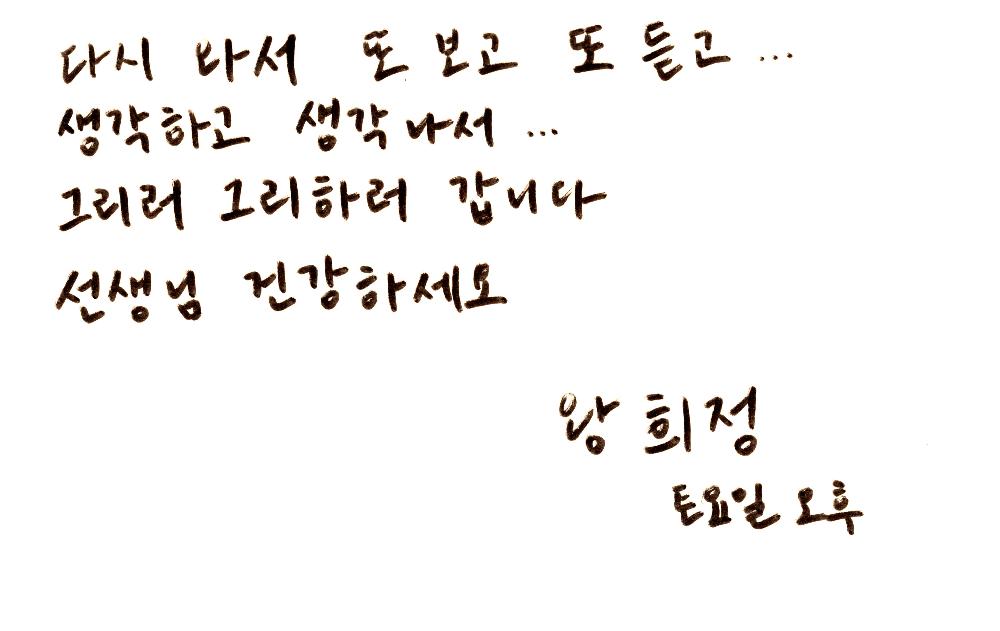 다시 와서 또 보고 또 듣고 ...
생각하고 생각나서 ...
그리러 그리하러 갑니다
선생님 건강하세요
왕희정
토요일 오후